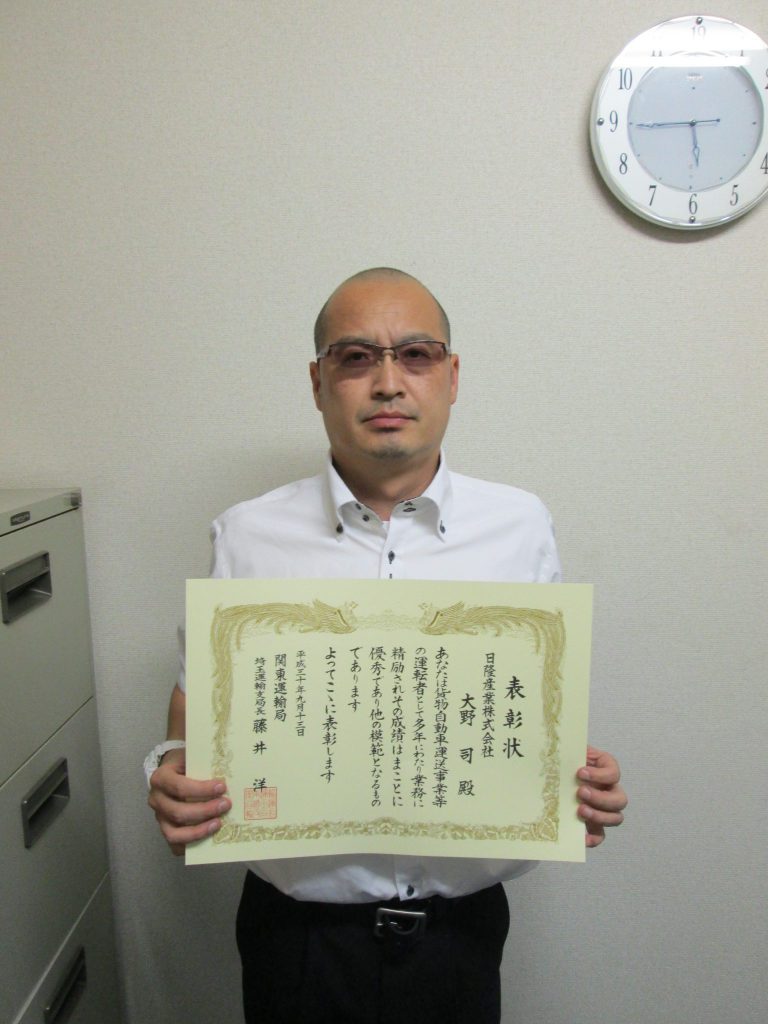 表彰状
日隆産業株式会社
大野 司 殿
あなたは貨物自動車運送事業等
の運転者として多年にわたり業務に
精励されその成績はまことに
優秀であり他の模範となるもの
であります
よってここに表彰します
平成三十年九月十三日
関東運輸局
埼玉運輸支局長 藤井 洋
12
10
9
8
7
6
5
4